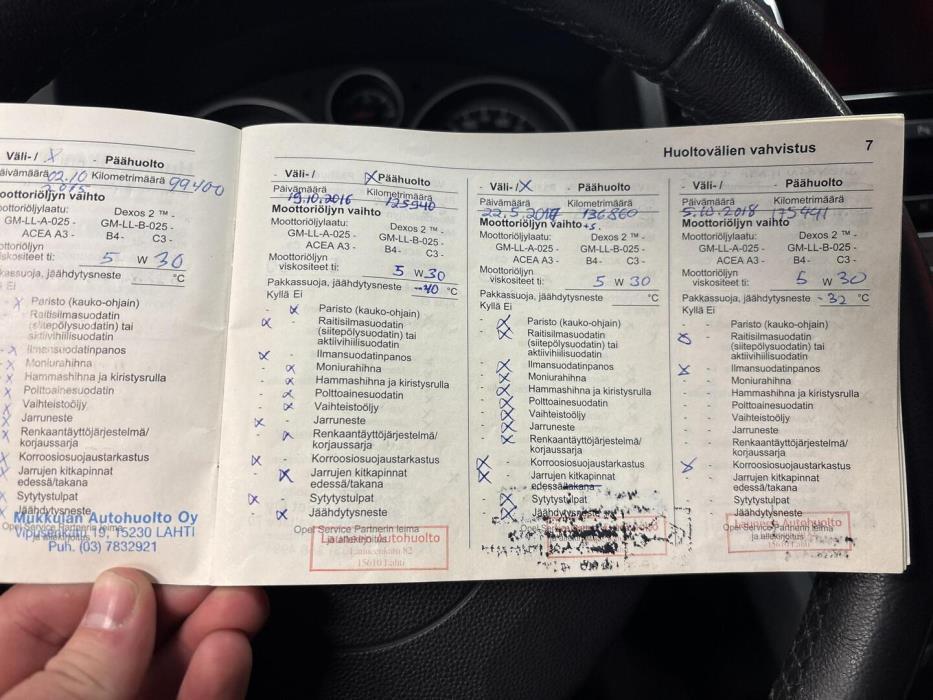 Huoltovälien vahvistus 7
Väli- / X - Päähuolto
Päivämäärä 02.10 2015 Kilometrimäärä 99400
Moottoriöljyn vaihto
Moottoriöljylaatu: Dexos 2 ™ -
GM-LL-A-025 - GM-LL-B-025 -
ACEA A3 - B4- C3 -
Moottoriöljyn
viskositeet ti: 5 W 30
Pakkassuoja, jäähdytysneste °C
Ei
X Paristo (kauko-ohjain)
Raitisilmasuodatin
(siitepölysuodatin) tai
aktiivihiilisuodatin
X Ilmansuodatinpanos
X Moniurahihna
X Hammashihna ja kiristysrulla
X Polttoainesuodatin
X Vaihteistoöljy
X Jarruneste
X Renkaantäyttöjärjestelmä/
korjaussarja
X Korroosiosuojaustarkastus
X Jarrujen kitkapinnat
edessä/takana
X Sytytystulpat
Jäähdytysneste
Mukkulan Autohuolto Oy
Vipusenkatu 19, 15230 LAHTI
Puh. (03) 7832921
- Väli- / X Päähuolto
Päivämäärä 19.10.2016 Kilometrimäärä 125940
Moottoriöljyn vaihto
Moottoriöljylaatu: Dexos 2 ™ -
GM-LL-A-025 - GM-LL-B-025 -
ACEA A3 - B4- C3 -
Moottoriöljyn
viskositeet ti: 5 W 30
Pakkassuoja, jäähdytysneste -40 °C
Kyllä Ei
- X Paristo (kauko-ohjain)
X - Raitisilmasuodatin
(siitepölysuodatin) tai
aktiivihiilisuodatin
X - Ilmansuodatinpanos
- X Moniurahihna
- X Hammashihna ja kiristysrulla
- X Polttoainesuodatin
- X Vaihteistoöljy
X - Jarruneste
- X Renkaantäyttöjärjestelmä/
korjaussarja
X - Korroosiosuojaustarkastus
- X Jarrujen kitkapinnat
edessä/takana
X - Sytytystulpat
- X Jäähdytysneste
Opel Service Partnerin leima
ja allekirjoitus Autohuolto
15610 Lahti
- Väli- / X - Päähuolto
Päivämäärä 22.5.2017 Kilometrimäärä 136860
Moottoriöljyn vaihto +s.
Moottoriöljylaatu: Dexos 2 ™ -
GM-LL-A-025 - GM-LL-B-025 -
ACEA A3 - B4 - C3 -
Moottoriöljyn
viskositeet ti: 5 W 30
Pakkassuoja, jäähdytysneste °C
Kyllä Ei
- X Paristo (kauko-ohjain)
- X Raitisilmasuodatin
(siitepölysuodatin) tai
aktiivihiilisuodatin
- X Ilmansuodatinpanos
- X Moniurahihna
- X Hammashihna ja kiristysrulla
- X Polttoainesuodatin
- X Vaihteistoöljy
- X Jarruneste
- X Renkaantäyttöjärjestelmä/
korjaussarja
X - Korroosiosuojaustarkastus
X - Jarrujen kitkapinnat
edessä/takana
- X Sytytystulpat
- X Jäähdytysneste
- Väli- / - Päähuolto
Päivämäärä 5.10.2018 Kilometrimäärä 175441
Moottoriöljyn vaihto
Moottoriöljylaatu: Dexos 2 ™ -
GM-LL-A-025 - GM-LL-B-025 -
ACEA A3 - B4 - C3 -
Moottoriöljyn
viskositeet ti: 5 W 30
Pakkassuoja, jäähdytysneste -32 °C
Kyllä Ei
- - Paristo (kauko-ohjain)
X - Raitisilmasuodatin
(siitepölysuodatin) tai
aktiivihiilisuodatin
X - Ilmansuodatinpanos
- - Moniurahihna
- - Hammashihna ja kiristysrulla
- - Polttoainesuodatin
- - Vaihteistoöljy
- - Jarruneste
- - Renkaantäyttöjärjestelmä/
korjaussarja
X - Korroosiosuojaustarkastus
- - Jarrujen kitkapinnat
edessä/takana
- - Sytytystulpat
- - Jäähdytysneste
Autohuolto
Opel Service Partnerin leima
ja allekirjoitus
15610 Lahti